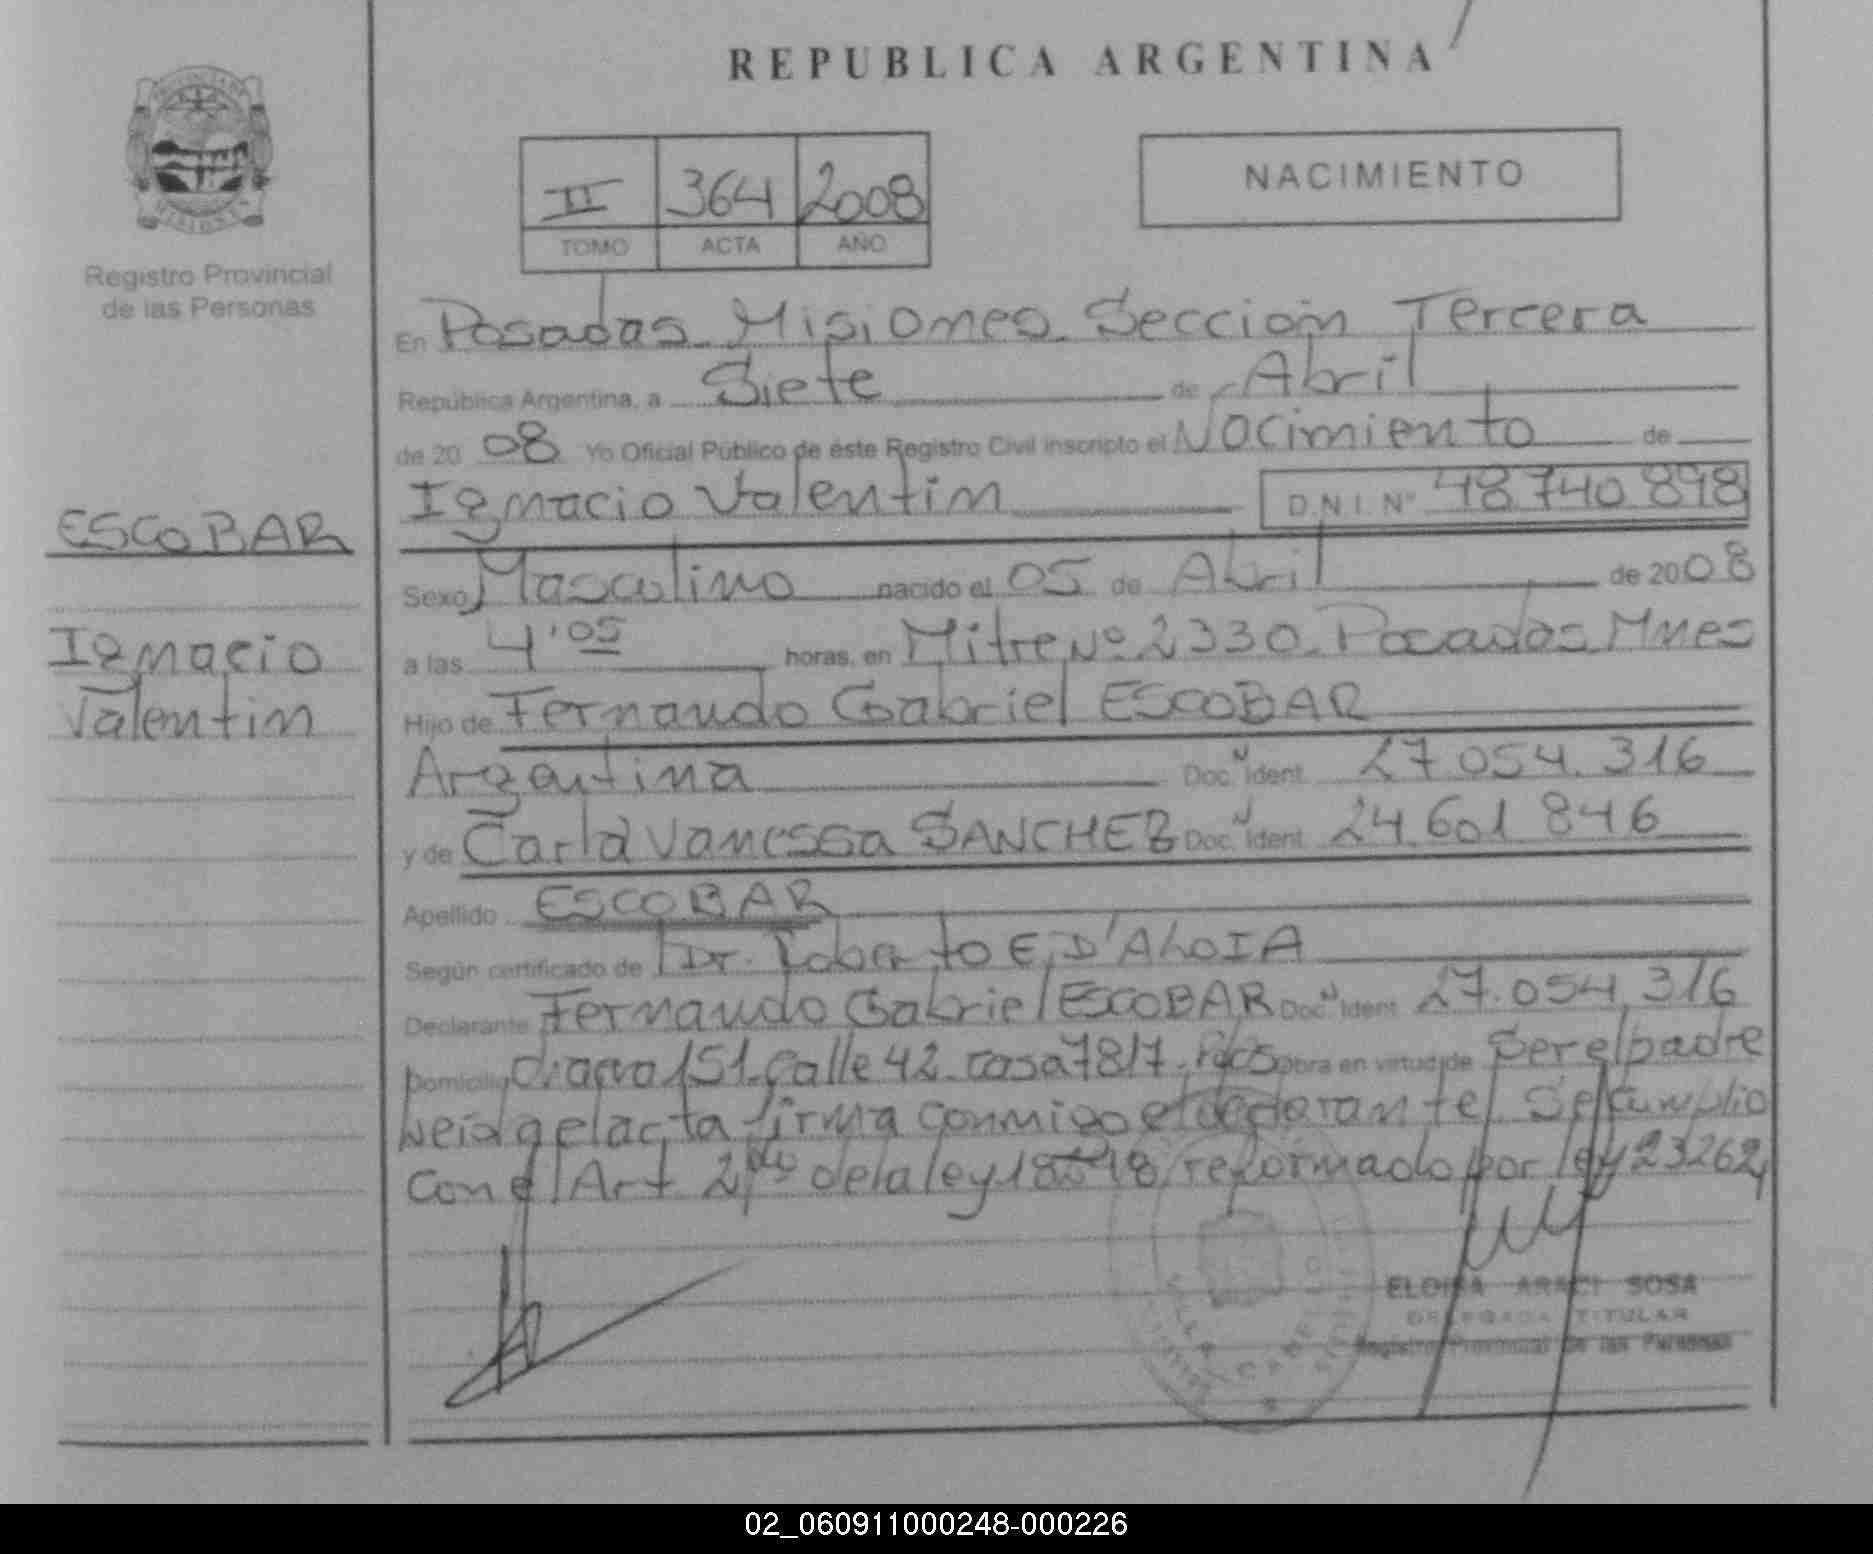 REPUBLICA ARGENTINA
II 364 2008
TOMO ACTA AÑO
NACIMIENTO
Registro Provincial
de las Personas
ESCOBAR
Ignacio
Valentin
En Posadas Misiones Sección Tercera
República Argentina, a Siete de Abril
de 20 08 Yo Oficial Público de éste Registro Civil inscripto el Nacimiento de
Ignacio Valentin D.N.I. Nº 48.740.898
Sexo Masculino nacido el 05 de Abril de 2008
a las 4'05 horas, en Mitre Nº 2330 Posadas Mnes
Hijo de Fernando Gabriel ESCOBAR
Argentina Doc. Ident. 27.054.316
y de Carla Vanessa SANCHEZ Doc. Ident. 24.601.846
Apellido ESCOBAR
Según certificado de Dr. Roberto E. D'ALOIA
Declarante Fernando Gabriel ESCOBAR Doc. Ident. 27.054.316
Domicilio 151 Calle 42 casa 7817 Obra en virtud de Ser el padre
Leida el acta firma conmigo el declarante Se cumplio
Con el Art 2do de la ley reformado por ley 23262
ELOISA ARACI SOSA
DELEGADA TITULAR
Registro Provincial de las Personas
02_060911000248-000226